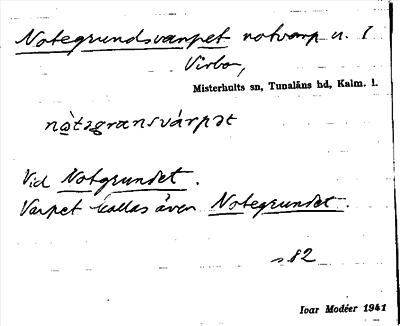 Notegrundsvarpet notvarp n. I
Virbo,
Misterhults sn, Tunaläns hd, Kalm. l.
nòtəgrənsvárpət
Vid Notgrundet.
Varpet kallas även Notegrundet.
s. 82
Ivar Modéer 1941